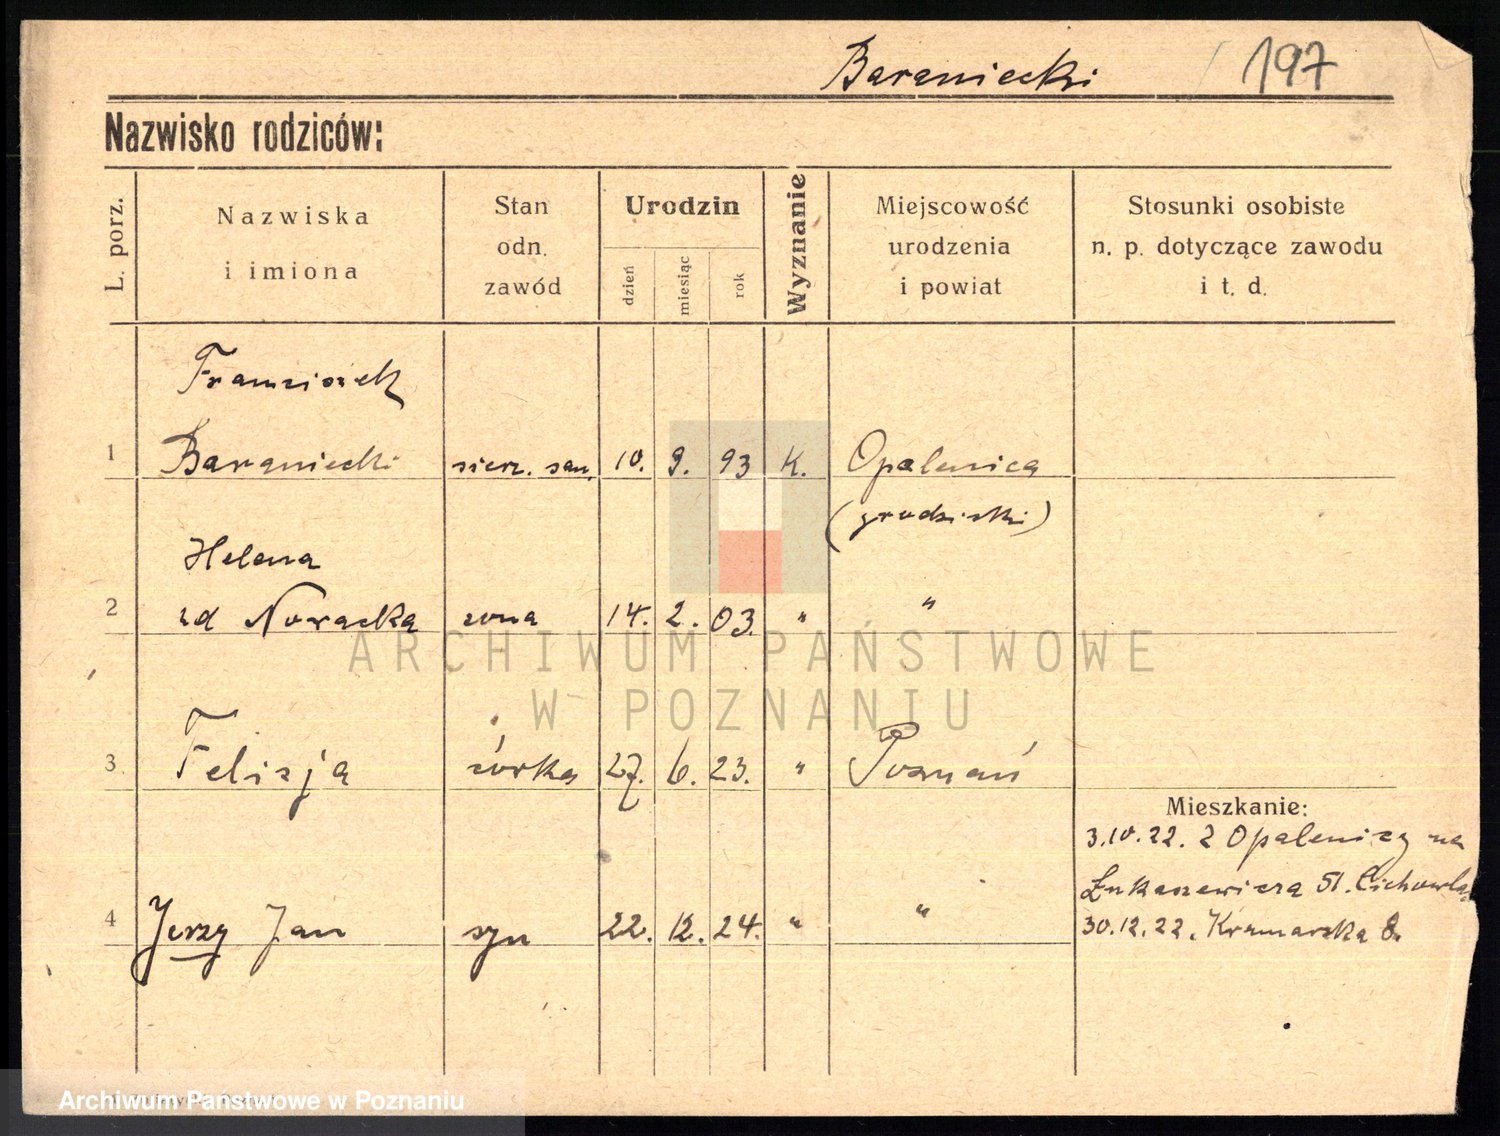 Baraniecki 197
Nazwisko rodziców:
L. porz.
Nazwiska
i imiona
Stan
odn.
zawód
Urodzin
dzień
miesiąc
rok
Wyznanie
Miejscowość
urodzenia
i powiat
Stosunki osobiste
n. p. dotyczące zawodu
i t. d.
Franciszek
1 Baraniecki sierz. san. 10. 9. 93 K. Opalenica
(grodziski)
Helena
2 zd Nowacka żona 14. 2. 03. " "
3 Felicja córka 27. 6. 23. " Poznań
Mieszkanie:
3.10.22. z Opalenicy na
Łukaszewicza 51.
4 Jerzy Jan syn 22. 12. 24. " " 30.12.22. Kramarska 8.
ARCHIWUM PAŃSTWOWE
W POZNANIU
Archiwum Państwowe w Poznaniu